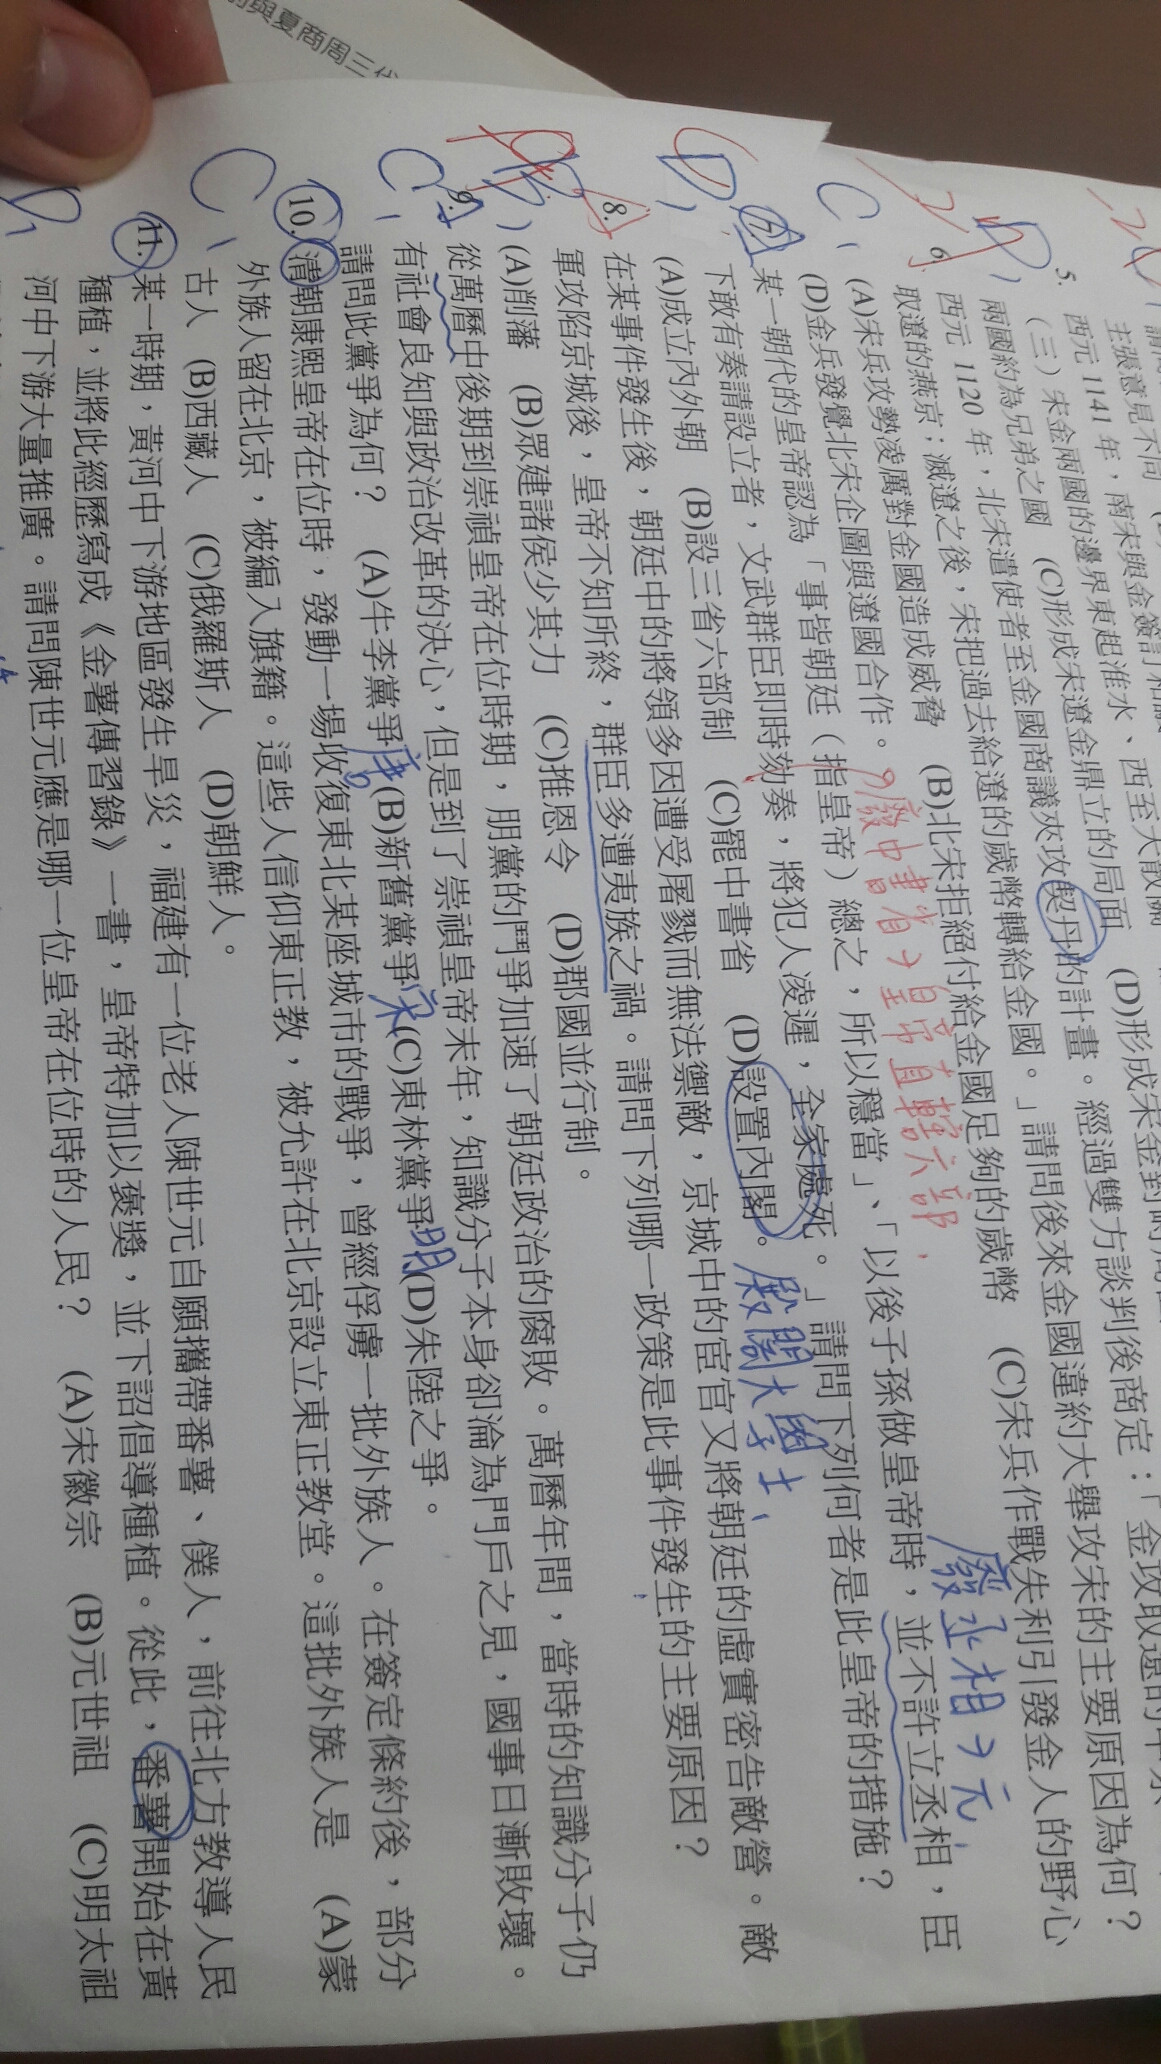 與夏商周三代
主張意見不同
5.
西元 1141 年，南宋與金簽訂和議
（三）宋金兩國的邊界東起淮水、西至大散關
兩國約為兄弟之國 (C)形成宋遼金鼎立的局面
D
6.
西元 1120 年，北宋遣使者至金國商議夾攻契丹的計畫。經過雙方談判後商定：「金攻取遼的中京
取遼的燕京；滅遼之後，宋把過去給遼的歲幣轉給金國。」請問後來金國違約大舉攻宋的主要原因為何？
(A)宋兵攻勢凌厲對金國造成威脅 (B)北宋拒絕付給金國足夠的歲幣 (C)宋兵作戰失利引發金人的野心
(D)金兵發覺北宋企圖與遼國合作。
廢中書省→皇帝直轄六部
廢丞相→元
C
7.
某一朝代的皇帝認為「事皆朝廷（指皇帝）總之，所以穩當」、「以後子孫做皇帝時，並不許立丞相，臣
下敢有奏請設立者，文武群臣即時劾奏，將犯人凌遲，全家處死。」請問下列何者是此皇帝的措施？
(A)成立內外朝 (B)設三省六部制 (C)罷中書省 (D)設置內閣。
殿閣大學士
D
8.
在某事件發生後，朝廷中的將領多因遭受屠戮而無法禦敵，京城中的宦官又將朝廷的虛實密告敵營。敵
軍攻陷京城後，皇帝不知所終，群臣多遭夷族之禍。請問下列哪一政策是此事件發生的主要原因？
(A)削藩 (B)眾建諸侯少其力 (C)推恩令 (D)郡國並行制。
9.
從萬曆中後期到崇禎皇帝在位時期，朋黨的鬥爭加速了朝廷政治的腐敗。萬曆年間，當時的知識分子仍
有社會良知與政治改革的決心，但是到了崇禎皇帝末年，知識分子本身卻淪為門戶之見，國事日漸敗壞。
請問此黨爭為何？ (A)牛李黨爭唐(B)新舊黨爭宋(C)東林黨爭明(D)朱陸之爭。
C
10.
清朝康熙皇帝在位時，發動一場收復東北某座城市的戰爭，曾經俘虜一批外族人。在簽定條約後，部分
外族人留在北京，被編入旗籍。這些人信仰東正教，被允許在北京設立東正教堂。這批外族人是 (A)蒙
古人 (B)西藏人 (C)俄羅斯人 (D)朝鮮人。
C
11.
某一時期，黃河中下游地區發生旱災，福建有一位老人陳世元自願攜帶番薯、僕人，前往北方教導人民
種植，並將此經歷寫成《金薯傳習錄》一書，皇帝特加以褒獎，並下詔倡導種植。從此，番薯開始在黃
河中下游大量推廣。請問陳世元應是哪一位皇帝在位時的人民？ (A)宋徽宗 (B)元世祖 (C)明太祖
D